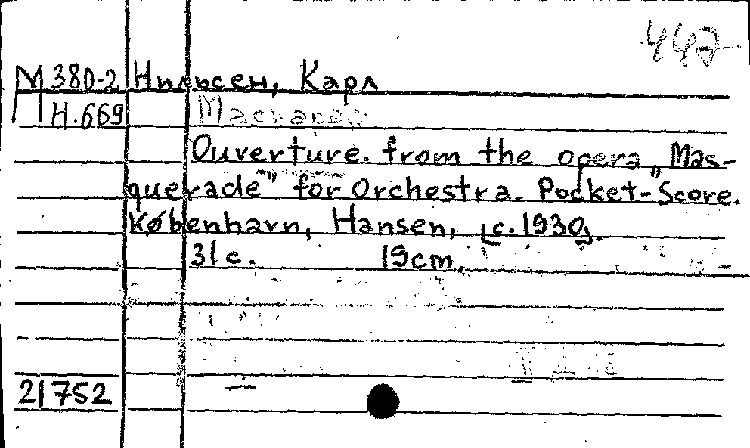 447
М 380-2 Нильсен, Карл
Н.669
Ouverture. from the opera „Mas-
querade" for Orchestra. Pocket-Score.
København, Hansen, [c. 1930].
31 с. 19 cm.
21752